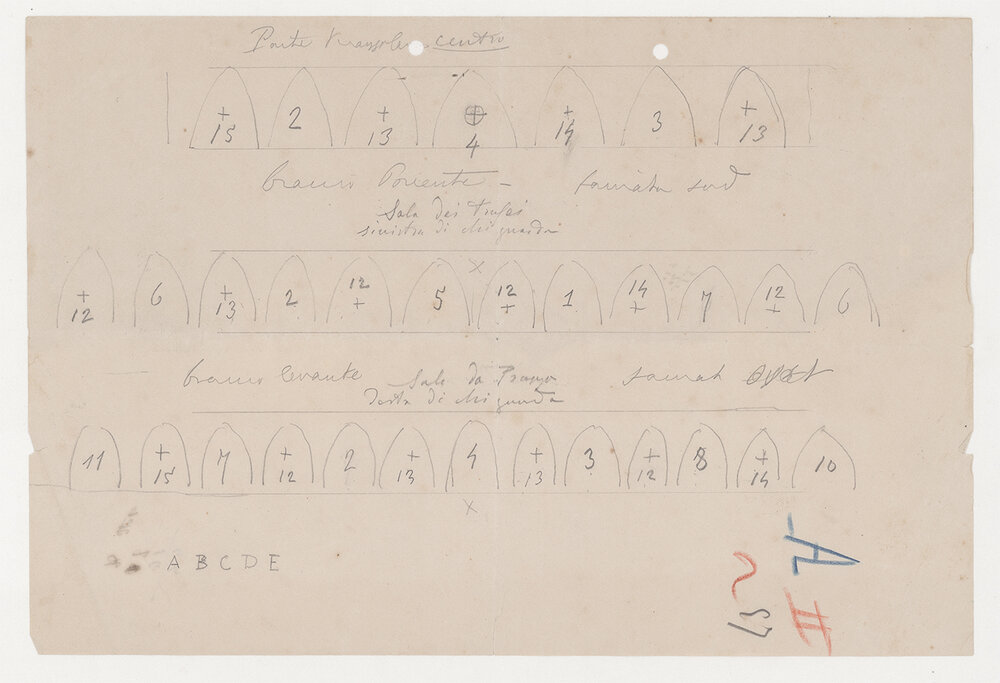 centro
+ 2 + + 3 +
15 13 4 14 13
braccio Ponente -
Sala dei Trofei
sinistra di chi guarda
x
+ 6 + 2 12 5 12 1 14 7 12 6
12 13 + + + +
braccio levante Sala da Pranzo
destra di chi guarda
11 + 7 + 2 + 4 + 3 + 8 + 10
15 12 13 13 12 14
x
A B C D E
A
II